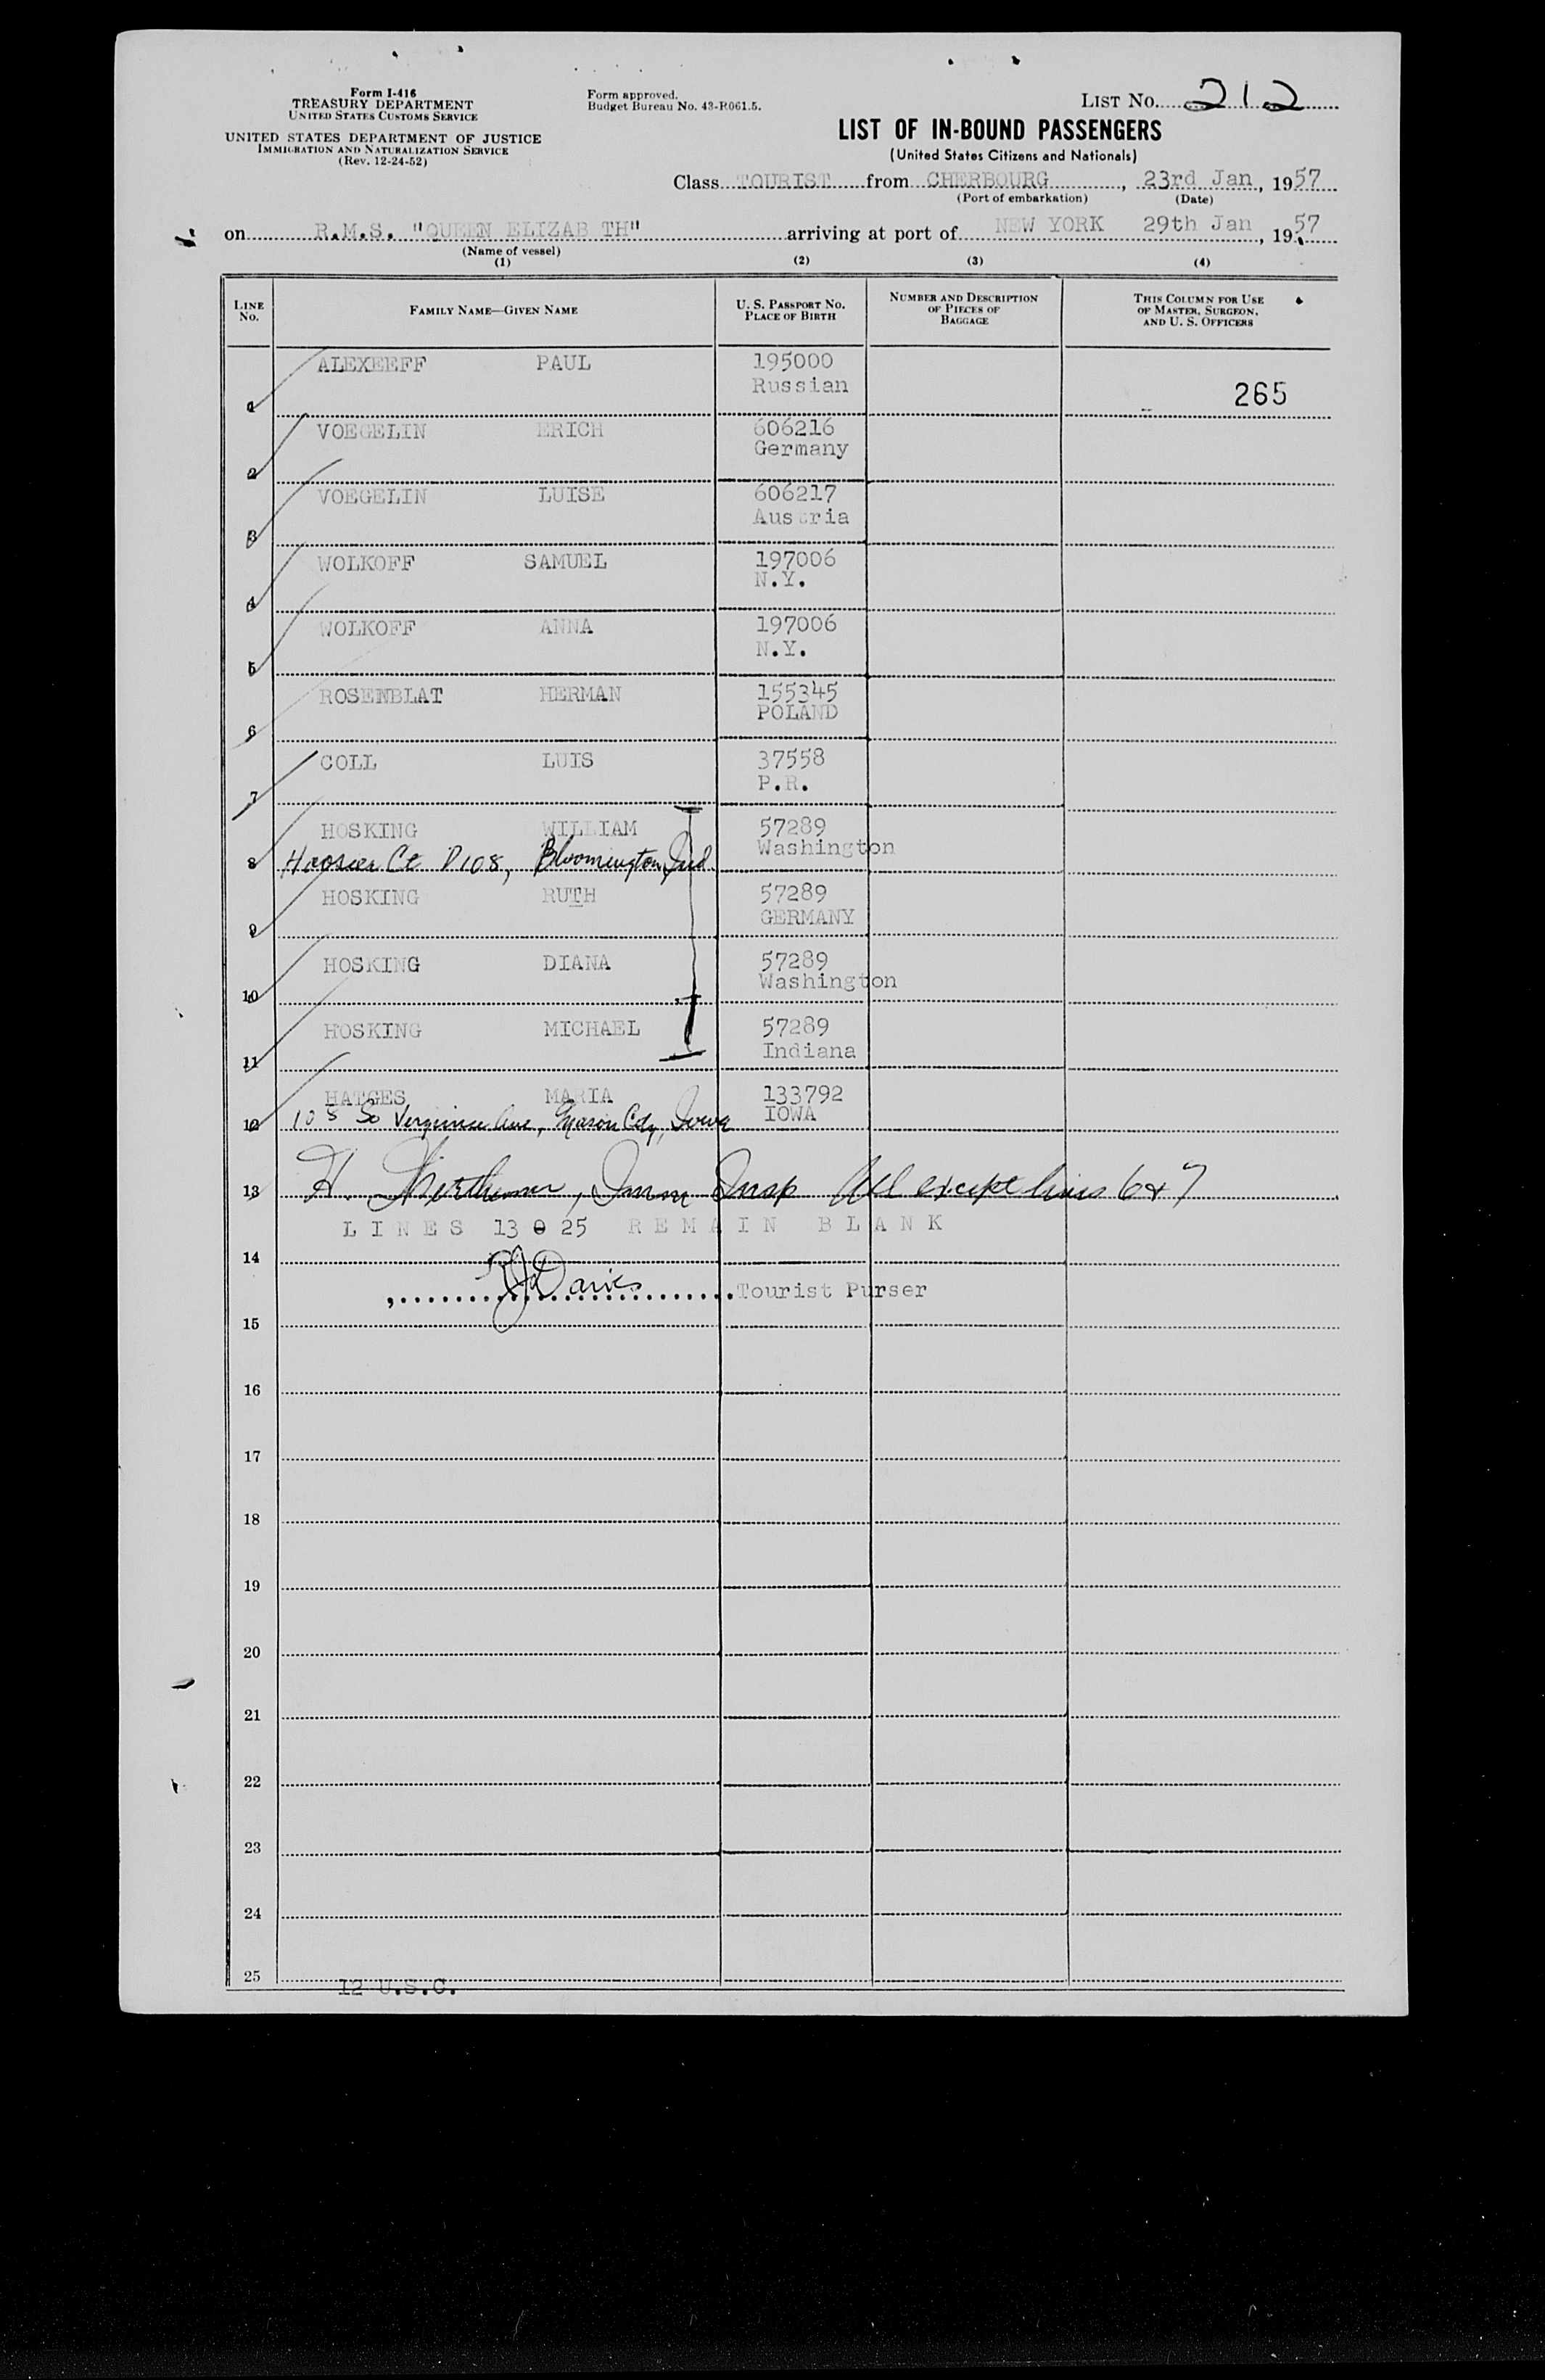 Form I-416
TREASURY DEPARTMENT
UNITED STATES CUSTOMS SERVICE
UNITED STATES DEPARTMENT OF JUSTICE
IMMIGRATION AND NATURALIZATION SERVICE
(Rev. 12-24-52)
Form approved.
Budget Bureau No. 43-R061.5.
LIST No. 212
LIST OF IN-BOUND PASSENGERS
(United States Citizens and Nationals)
Class TOURIST from CHERBOURG, 23rd Jan, 1957
(Port of embarkation) (Date)
on R.M.S. "QUEEN ELIZAB TH" arriving at port of NEW YORK 29th Jan, 1957
(Name of vessel)
(1) (2) (3) (4)
LINE No. FAMILY NAME—GIVEN NAME U. S. PASSPORT No. PLACE OF BIRTH NUMBER AND DESCRIPTION OF PIECES OF BAGGAGE THIS COLUMN FOR USE OF MASTER, SURGEON, AND U. S. OFFICERS
1 ALEXEEFF PAUL 195000
Russian 265
2 VOEGELIN ERICH 606216
Germany
3 VOEGELIN LUISE 606217
Austria
4 WOLKOFF SAMUEL 197006
N.Y.
5 WOLKOFF ANNA 197006
N.Y.
6 ROSENBLAT HERMAN 155345
POLAND
7 COLL LUIS 37558
P.R.
8 HOSKING WILLIAM 57289
Washington
Hoosier Ct D108, Bloomington, Ind
9 HOSKING RUTH 57289
GERMANY
10 HOSKING DIANA 57289
Washington
11 HOSKING MICHAEL 57289
Indiana
12 HATGES MARIA 133792
IOWA
108 So Virginia Ave, Mason City, Iowa
13 H. Wertheimer, Imm Insp All except lines 6 & 7
LINES 13 0 25 REMAIN BLANK
14
RJ Davies Tourist Purser
15
16
17
18
19
20
21
22
23
24
25
12 U.S.C.